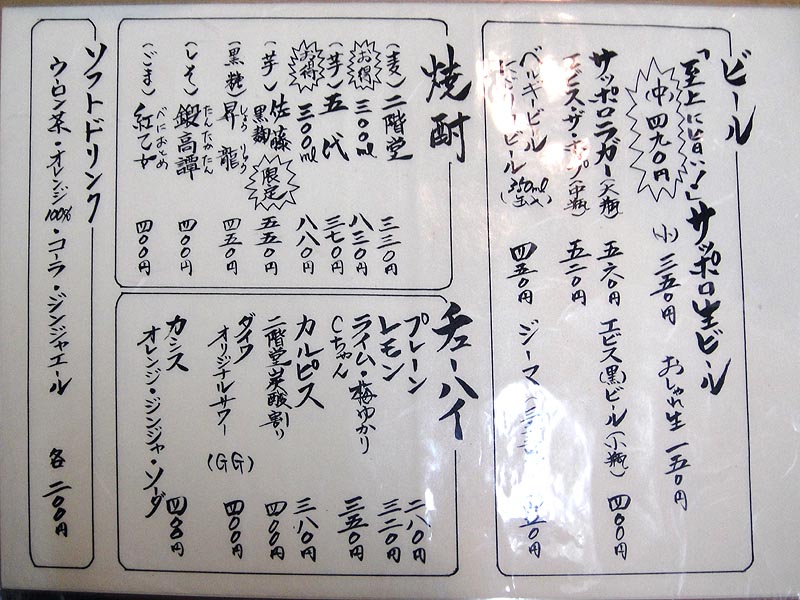 ビール
「至上に旨い！」サッポロ生ビール
(中) 四九〇円 (小) 三五〇円 おしゃれ生 一五〇円
サッポロラガー(大瓶) 五六〇円 エビス(黒)ビール(小瓶) 四〇〇円
エビス・ザ・ホップ(中瓶) 五二〇円
ベルギービール
(350ml 生×) 四五〇円 ジーマ
焼酎
(麦) 二階堂 三三〇円
お得 三〇〇ml 八三〇円
(芋) 五代 三七〇円
お得 三〇〇ml 八八〇円
(芋) 佐藤 黒麹 限定 五五〇円
(黒糖) 昇龍 しょうりゅう 四五〇円
(しそ) 鍛高譚 たんたかたん 四〇〇円
(ごま) 紅乙女 べにおとめ 四〇〇円
チューハイ
プレーン 二八〇円
レモン 三二〇円
ライム・梅・ゆかり
Cちゃん 三五〇円
カルピス 三八〇円
二階堂炭酸割り 四〇〇円
ダイワ
オリジナルサワー (GG) 四〇〇円
カシス
オレンジ・ジンジャ・ソーダ 四〇〇円
ソフトドリンク
ウーロン茶・オレンジ100%・コーラ・ジンジャエール 各 二〇〇円